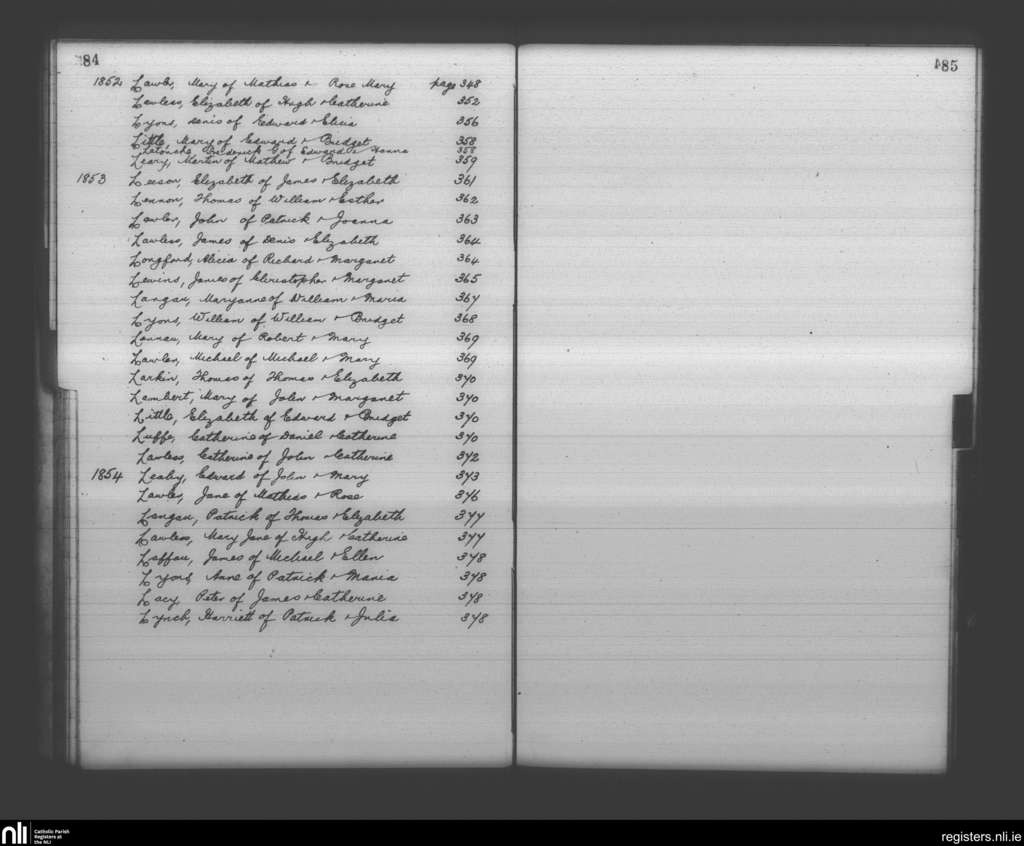 84
1852 Lawler, Mary of Mathias & Rose Mary page 348
Lawless, Elizabeth of Hugh & Catherine 352
Lyons, Denis of Edward & Elicia 356
Little, Mary of Edward & Bridget 358
Latouche, Frederick G of Edward & Hanna 358
Leary, Martin of Mathew & Bridget 359
1853 Leeson, Elizabeth of James & Elizabeth 361
Lennon, Thomas of William & Esther 362
Lawler, John of Patrick & Joanna 363
Lawless, James of Denis & Elizabeth 364
Longford, Alicia of Richard & Margaret 364
Lewins, James of Christopher & Margaret 365
Langan, Maryanne of William & Maria 367
Lyons, William of William & Bridget 368
Mary of Robert & Mary 369
Lawler, Michael of Michael & Mary 369
Larkin, Thomas of Thomas & Elizabeth 370
Lambert, Mary of John & Margaret 370
Little, Elizabeth of Edward & Bridget 370
Luffe, Catherine of Daniel & Catherine 370
Lawless, Catherine of John & Catherine 372
1854 Leahy, Edward of John & Mary 373
Lawler, Jane of Mathias & Rose 376
Langan, Patrick of Thomas & Elizabeth 377
Lawless, Mary Jane of Hugh & Catherine 377
Leffau, James of Michael & Ellen 378
Lyons, Anne of Patrick & Maria 378
Lacy, Peter of James & Catherine 378
Lynch, Harriett of Patrick & Julia 378
485
nli Catholic Parish
Registers at
the NLI
registers.nli.ie